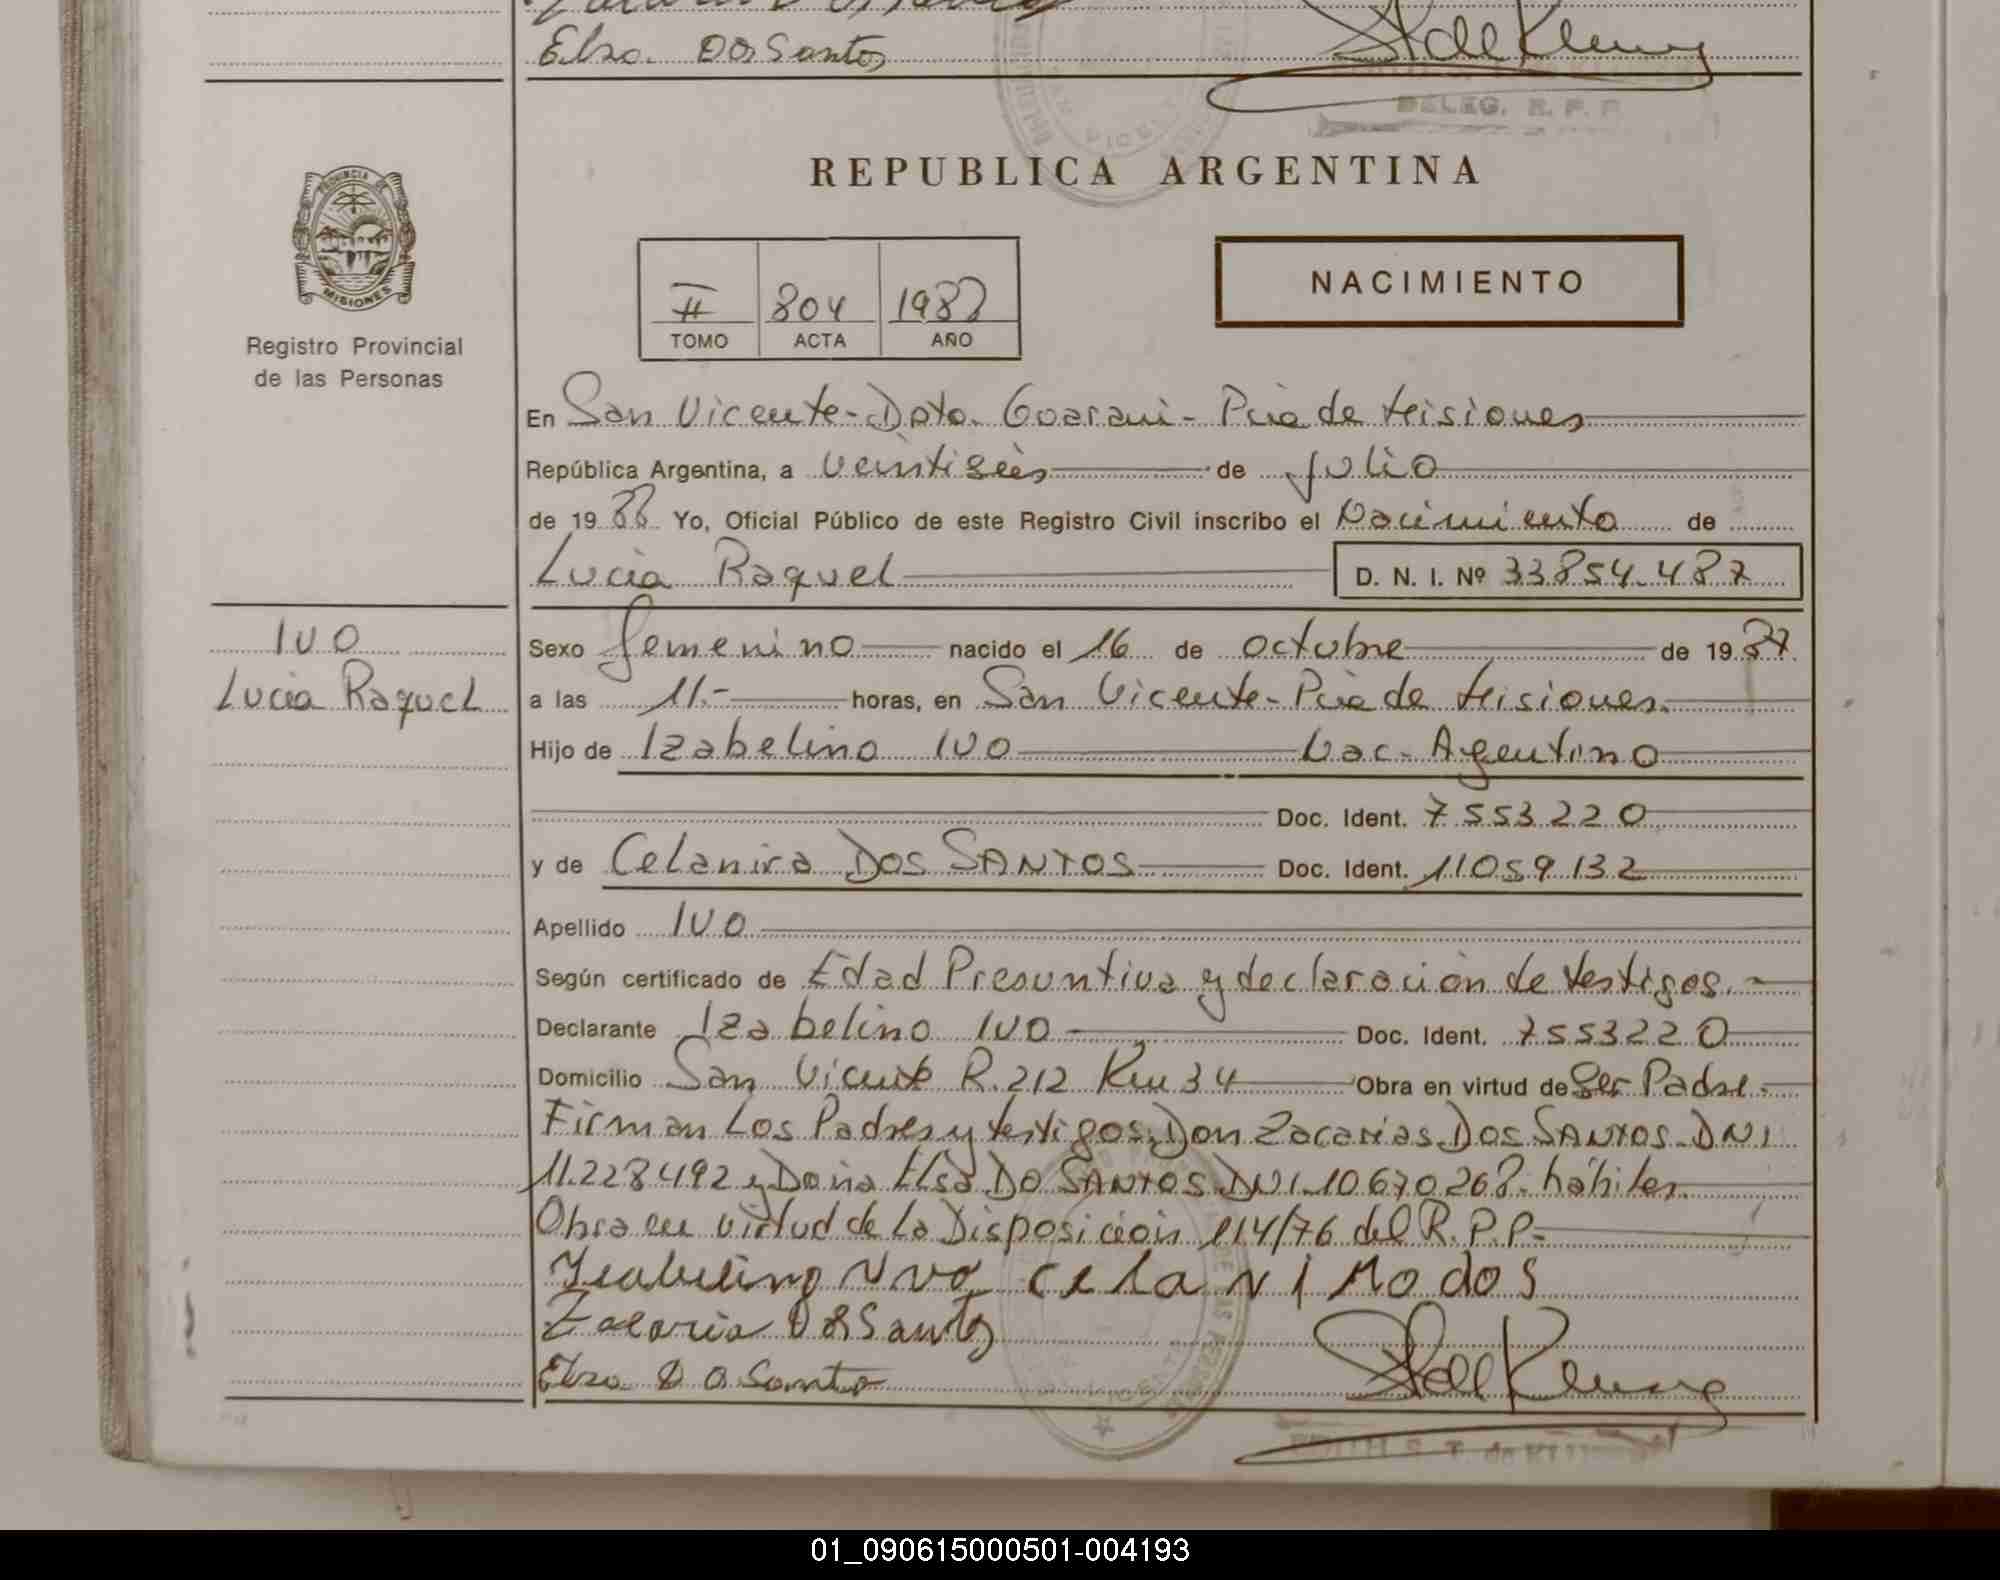 Elsa Dos Santos
DELEG. R. P. P.
REPUBLICA ARGENTINA
PROVINCIA DE
MISIONES
Registro Provincial
de las Personas
II 804 1988
TOMO ACTA AÑO
NACIMIENTO
En San Vicente - Dpto. Guarani - Pcia de Misiones
República Argentina, a veintiséis de Julio
de 1988 Yo, Oficial Público de este Registro Civil inscribo el Nacimiento de
Lucia Raquel D. N. I. Nº 33854.487
IVO
Lucia Raquel
Sexo femenino nacido el 16 de octubre de 1987.
a las 11.- horas, en San Vicente - Pcia de Misiones.
Hijo de Izabelino IVO Nac- Argentino
Doc. Ident. 7553220
y de Celanira DOS SANTOS Doc. Ident. 11059132
Apellido IVO
Según certificado de Edad Presuntiva y declaración de testigos.-
Declarante Izabelino IVO Doc. Ident. 7553220
Domicilio San Vicente R.212 Km 34 Obra en virtud de Ser Padre.-
Firman Los Padres y testigos, Don Zacarias DOS SANTOS - DNI
11.228492 y Doña Elsa DO SANTOS DNI-10670268- hábiles
Obra en virtud de La Disposición 114/76 del R.P.P.-
celanimodos
Zacaria DosSantos
Elsa Do Santos
01_090615000501-004193